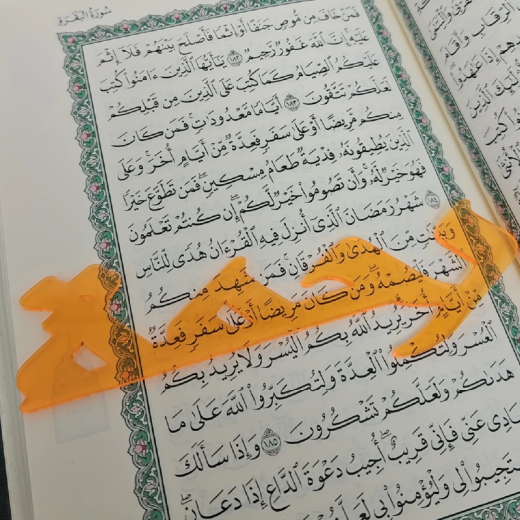 سُورَةُ البَقَرَةِ
فَمَنْ خَافَ مِن مُّوصٍ جَنَفًا أَوْ إِثْمًا فَأَصْلَحَ بَيْنَهُمْ فَلَآ إِثْمَ
عَلَيْهِ إِنَّ ٱللَّهَ غَفُورٌ رَّحِيمٌ ١٨٢ يَٰٓأَيُّهَا ٱلَّذِينَ ءَامَنُوا۟ كُتِبَ
عَلَيْكُمُ ٱلصِّيَامُ كَمَا كُتِبَ عَلَى ٱلَّذِينَ مِن قَبْلِكُمْ
لَعَلَّكُمْ تَتَّقُونَ ١٨٣ أَيَّامًا مَّعْدُودَٰتٍ فَمَن كَانَ
مِنكُم مَّرِيضًا أَوْ عَلَىٰ سَفَرٍ فَعِدَّةٌ مِّنْ أَيَّامٍ أُخَرَ وَعَلَى
ٱلَّذِينَ يُطِيقُونَهُۥ فِدْيَةٌ طَعَامُ مِسْكِينٍ فَمَن تَطَوَّعَ خَيْرًا
فَهُوَ خَيْرٌ لَّهُۥ وَأَن تَصُومُوا۟ خَيْرٌ لَّكُمْ إِن كُنتُمْ تَعْلَمُونَ
١٨٤ شَهْرُ رَمَضَانَ ٱلَّذِىٓ أُنزِلَ فِيهِ ٱلْقُرْءَانُ هُدًى لِّلنَّاسِ
وَبَيِّنَٰتٍ مِّنَ ٱلْهُدَىٰ وَٱلْفُرْقَانِ فَمَن شَهِدَ مِنكُمُ
ٱلشَّهْرَ فَلْيَصُمْهُ وَمَن كَانَ مَرِيضًا أَوْ عَلَىٰ سَفَرٍ فَعِدَّةٌ
مِّنْ أَيَّامٍ أُخَرَ يُرِيدُ ٱللَّهُ بِكُمُ ٱلْيُسْرَ وَلَا يُرِيدُ بِكُمُ
ٱلْعُسْرَ وَلِتُكْمِلُوا۟ ٱلْعِدَّةَ وَلِتُكَبِّرُوا۟ ٱللَّهَ عَلَىٰ مَا
هَدَىٰكُمْ وَلَعَلَّكُمْ تَشْكُرُونَ ١٨٥ وَإِذَا سَأَلَكَ
عَنِّى فَإِنِّى قَرِيبٌ أُجِيبُ دَعْوَةَ ٱلدَّاعِ إِذَا دَعَانِ
رحمة